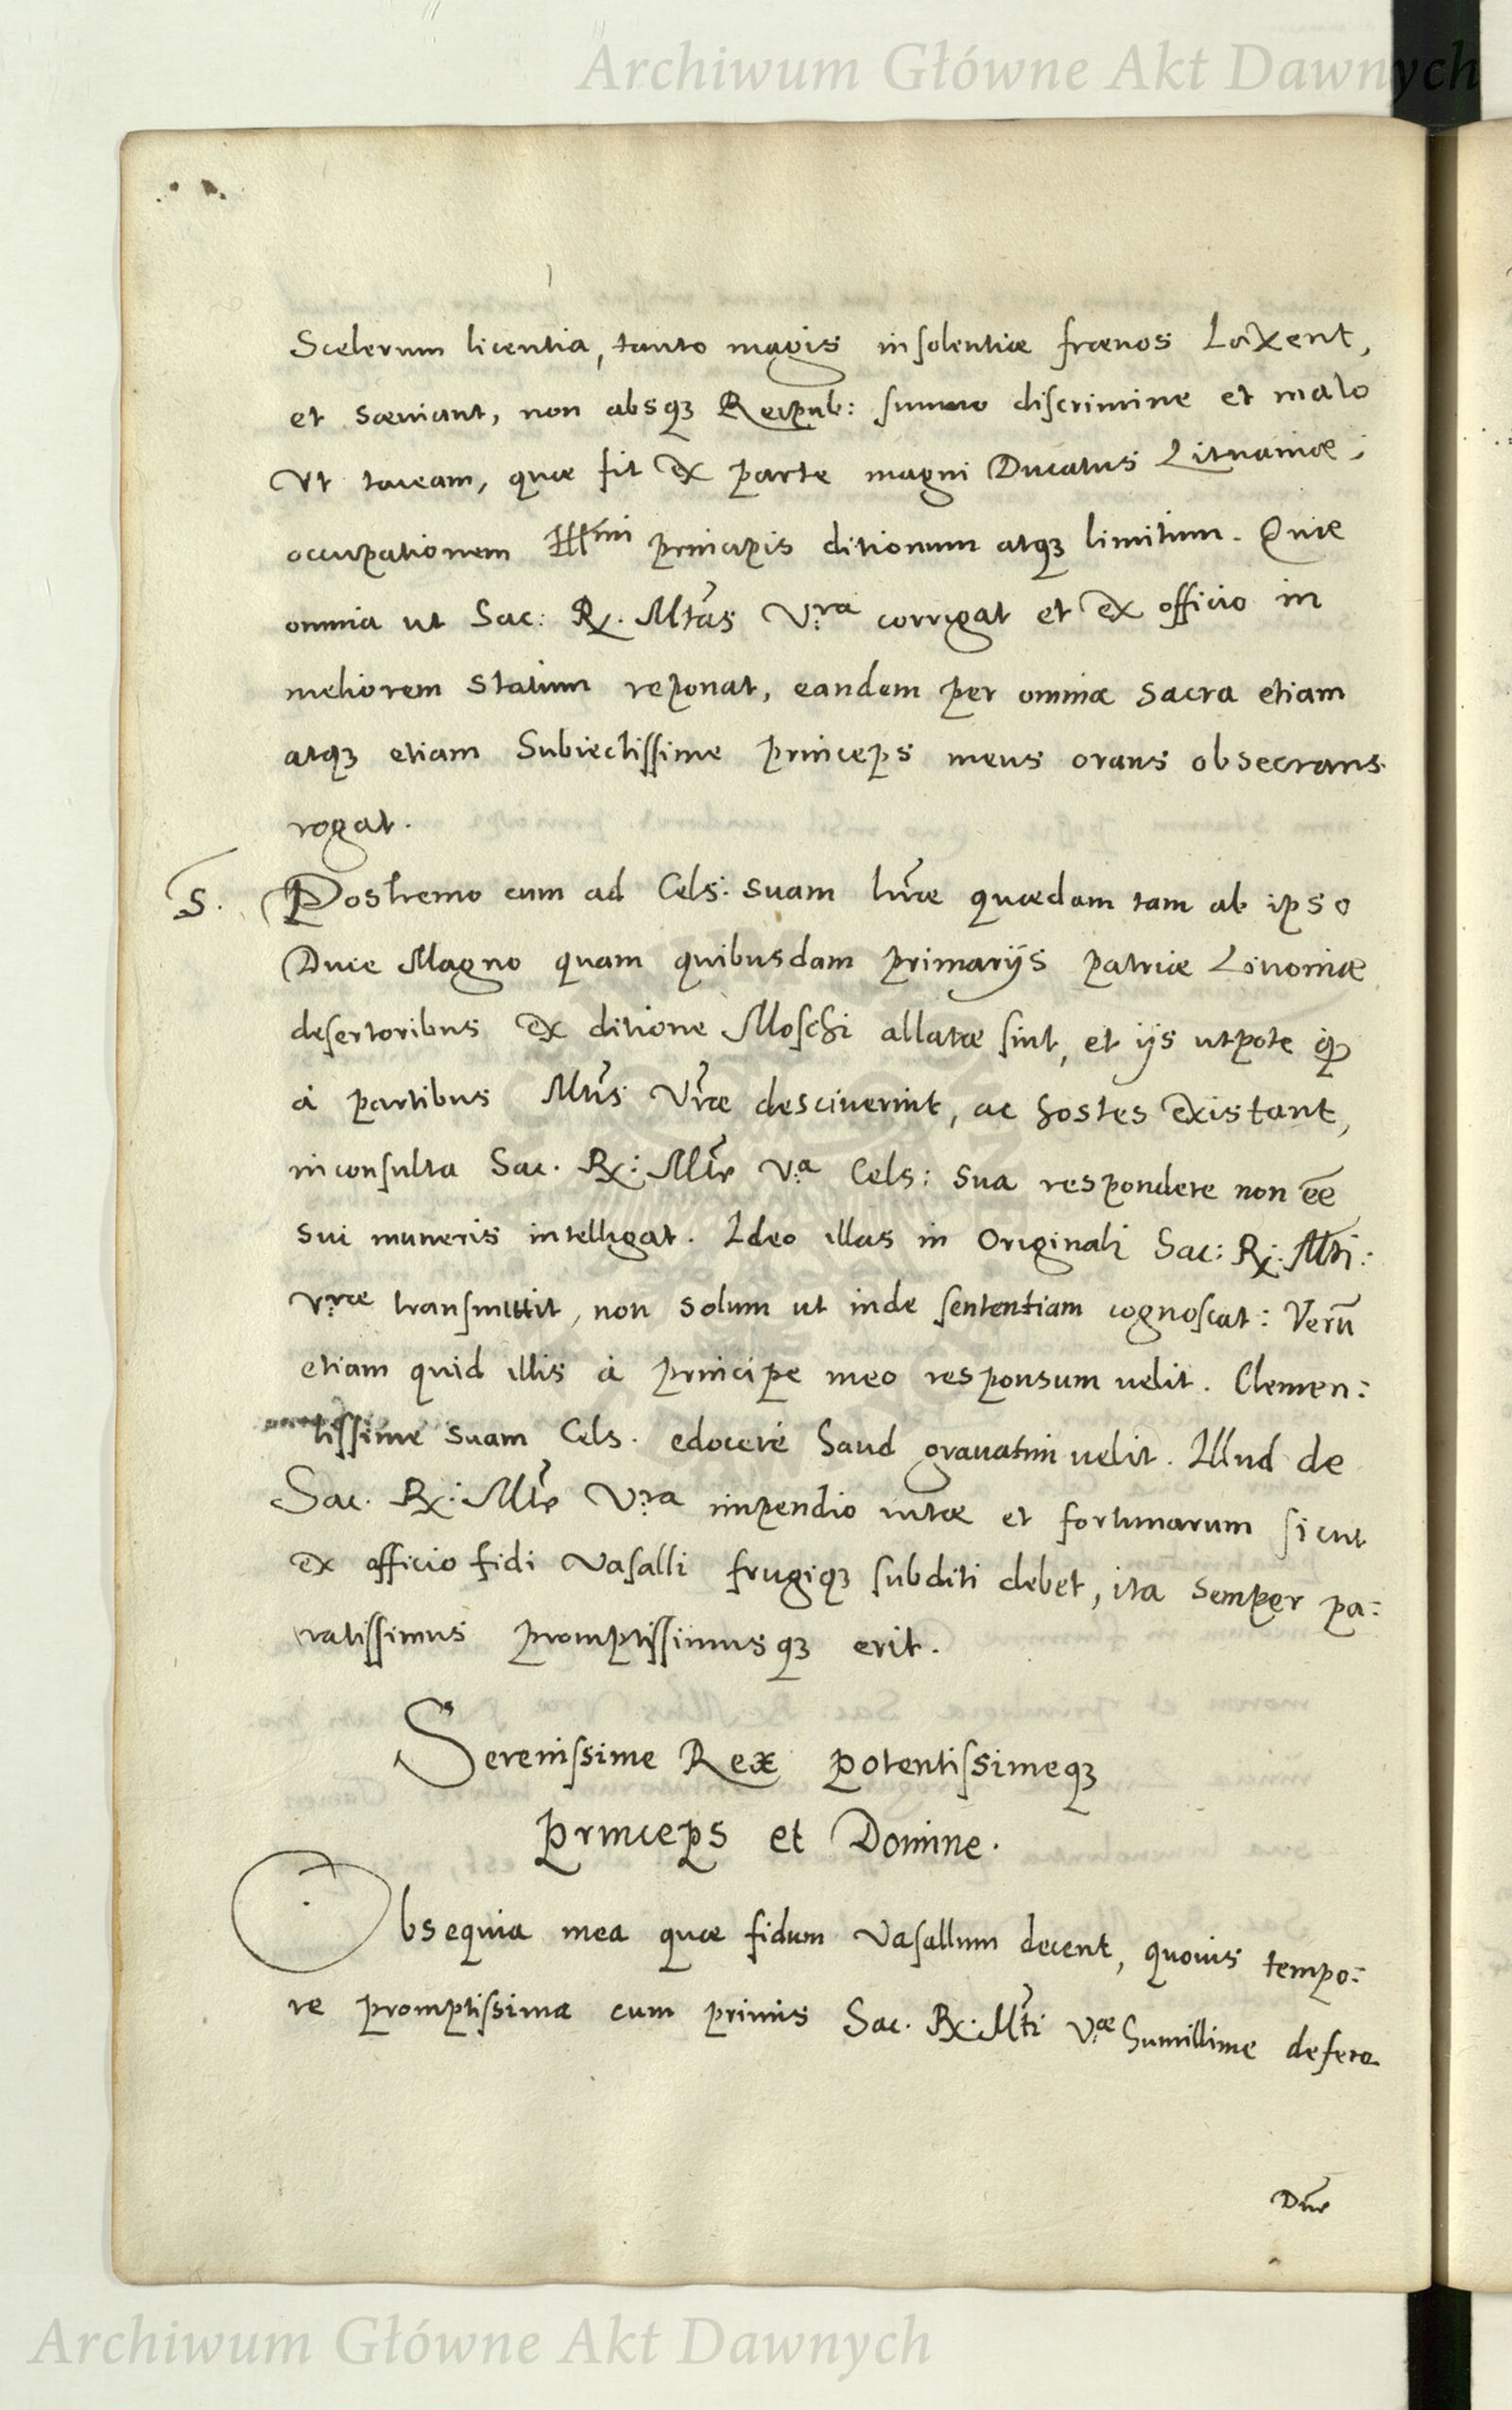 Archiwum Główne Akt Dawnych
Scelerum licentia, tanto magis insolentiæ frænos Laxent,
et sæuiant, non absqꝫ Reipub: summo discrimine et malo
Vt taceam, quæ fit ex parte magni Ducatus Lituaniæ;
occupationem Illmi principis ditionum atqꝫ limitum. Quæ
omnia ut Sac: R. Mtas Vra corrigat et ex officio in
meliorem statum reponat, eandem per omnia sacra etiam
atqꝫ etiam Subiectissime princeps meus orans obsecrans
rogat.
5. Postremo cum ad Cels: suam lræ quædam tam ab ipso
Duce Magno quam quibusdam primarijs patriæ Liuoniæ
desertoribus ex ditione Moschi allatæ sint, et ijs utpote qui
à partibus Mtis Vræ desciuerint, ac hostes existant,
inconsulta Sac. R: Mte Va Cels: sua respondere non ee
sui muneris intelligat. Ideo illas in Originali Sac: R: Mti:
Vræ transmittit, non solum ut inde sententiam cognoscat: Verū
etiam quid illis à principe meo responsum uelit. Clemen:
tissime suam Cels. edocere haud grauatim uelit. Illud de
Sac. R: Mte Vra impendio uitæ et fortunarum sicut
ex officio fidi Vasalli frugiqꝫ subditi debet, ita semper pa:
ratissimus promptissimusqꝫ erit.
Serenissime Rex potentissimeqꝫ
princeps et Domine.
Obsequia mea quæ fidum Vasallum decent, quouis tempo:
re promptissima cum primis Sac. R. Mti Væ humillime defero
Dne
Archiwum Główne Akt Dawnych